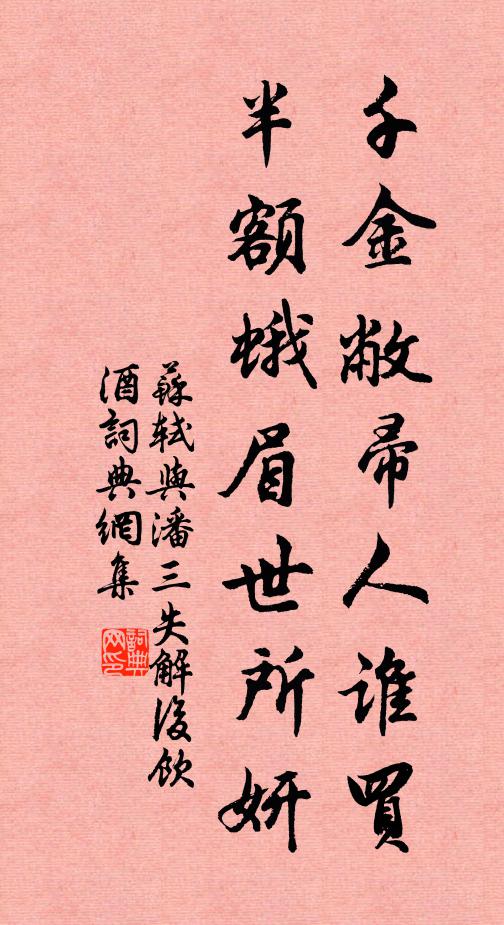 千金敝帚人誰買
半額蛾眉世所妍
蘇軾與潘三失解後飲
酒詞典網集
詞典
网印